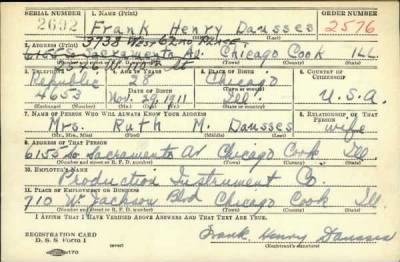 SERIAL NUMBER 1. NAME (Print) ORDER NUMBER
2692 Frank Henry Dausses 2576
(First) (Middle) (Last)
3738 West 62nd Place
2. ADDRESS (Print)
6155 So Sacramento Av. Chicago Cook Ill.
(Number and street or R. F. D. number) (Town) (County) (State)
3. TELEPHONE 4. AGE IN YEARS 5. PLACE OF BIRTH 6. COUNTRY OF CITIZENSHIP
Republic 28 Chicago
4653 DATE OF BIRTH Ill. U.S.A.
Nov. 29, 1911
(Mo.) (Day) (Yr.) (State or country)
7. NAME OF PERSON WHO WILL ALWAYS KNOW YOUR ADDRESS RELATIONSHIP OF THAT PERSON
Mrs. Ruth M. Dausses wife
(Mr., Mrs., Miss) (First) (Middle) (Last)
8. ADDRESS OF THAT PERSON
6155 So Sacramento Av Chicago Cook Ill.
(Number and street or R. F. D. number) (Town) (County) (State)
10. EMPLOYER'S NAME
Production Instrument Co.
11. PLACE OF EMPLOYMENT OR BUSINESS
710 W. Jackson Blvd Chicago Cook Ill.
(Number and street or R. F. D. number) (Town) (County) (State)
I AFFIRM THAT I HAVE VERIFIED ABOVE ANSWERS AND THAT THEY ARE TRUE.
REGISTRATION CARD Frank Henry Dausses
D. S. S. Form 1 (over) (Registrant's signature)